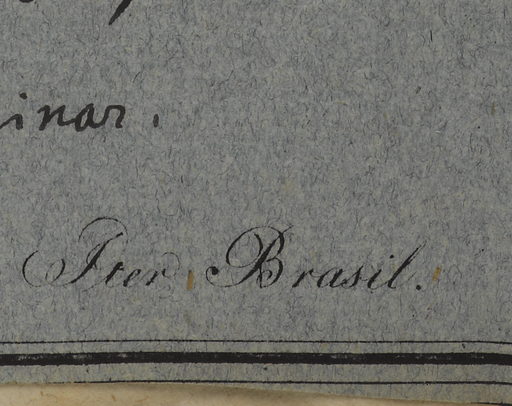 inar.
Iter Brasil.